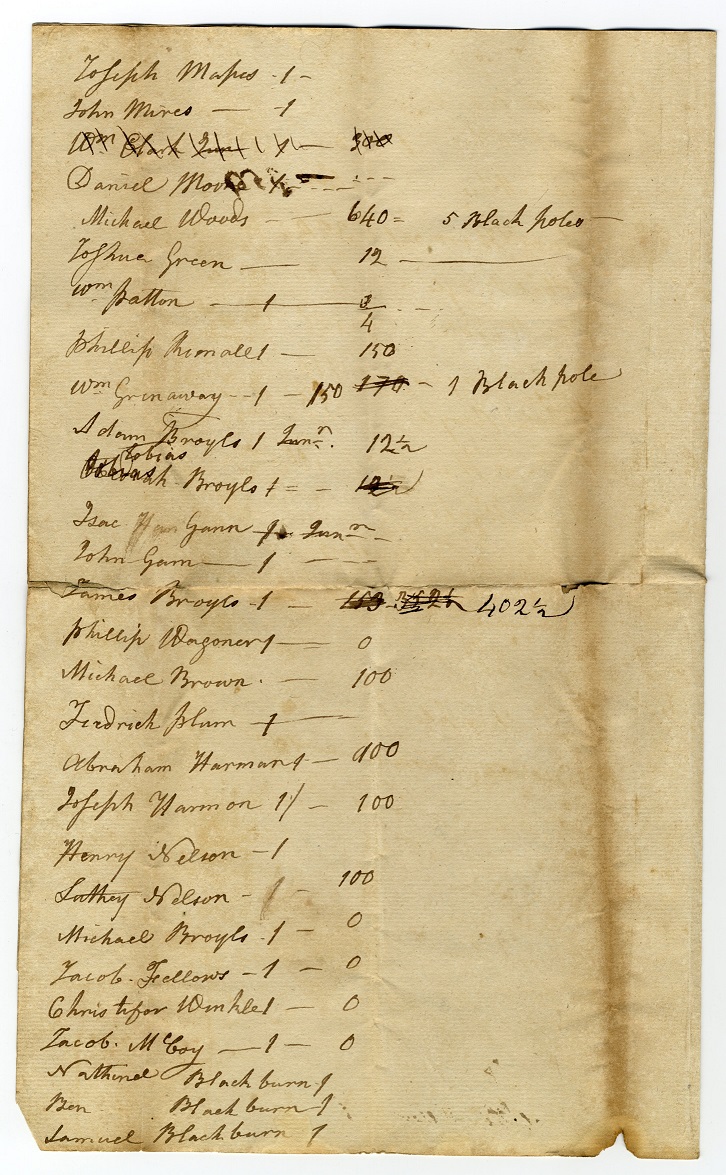 Joseph Mapes - 1 -
John Mires — - 1
Wm Clark Jun 1 — 300
Daniel Moore
Michael Woods — 640 = 5 Black poles —
Joshua Green — 12 —
Wm Patton — 1 — 3/4
Phillip 1 — 150
Wm Grinaway - - 1 - 150 170 - 1 Black pole
Adam Broyls 1 Junr. 12½
Tobias
Broyls 1 = - 12½
Isac Gann 1 - Junr -
John Gann — 1 - —
James Broyls - 1 — 153 402½
Phillip Wagoner 1 — 0
Michael Brown. — 100
Fredrick Plum — 1 —
Abraham Harman 1 — 100
Joseph Harmon 1 / — 100
Henry Nelson - 1
Suthey Nelson - 1 - 100
Michael Broyls - 1 — 0
Jacob. Fellows - 1 — 0
Christifor Winkle 1 — 0
Jacob. McCoy — 1 — 0
Nathinel Blackburn 1
Ben Blackburn 1
Samuel Blackburn 1